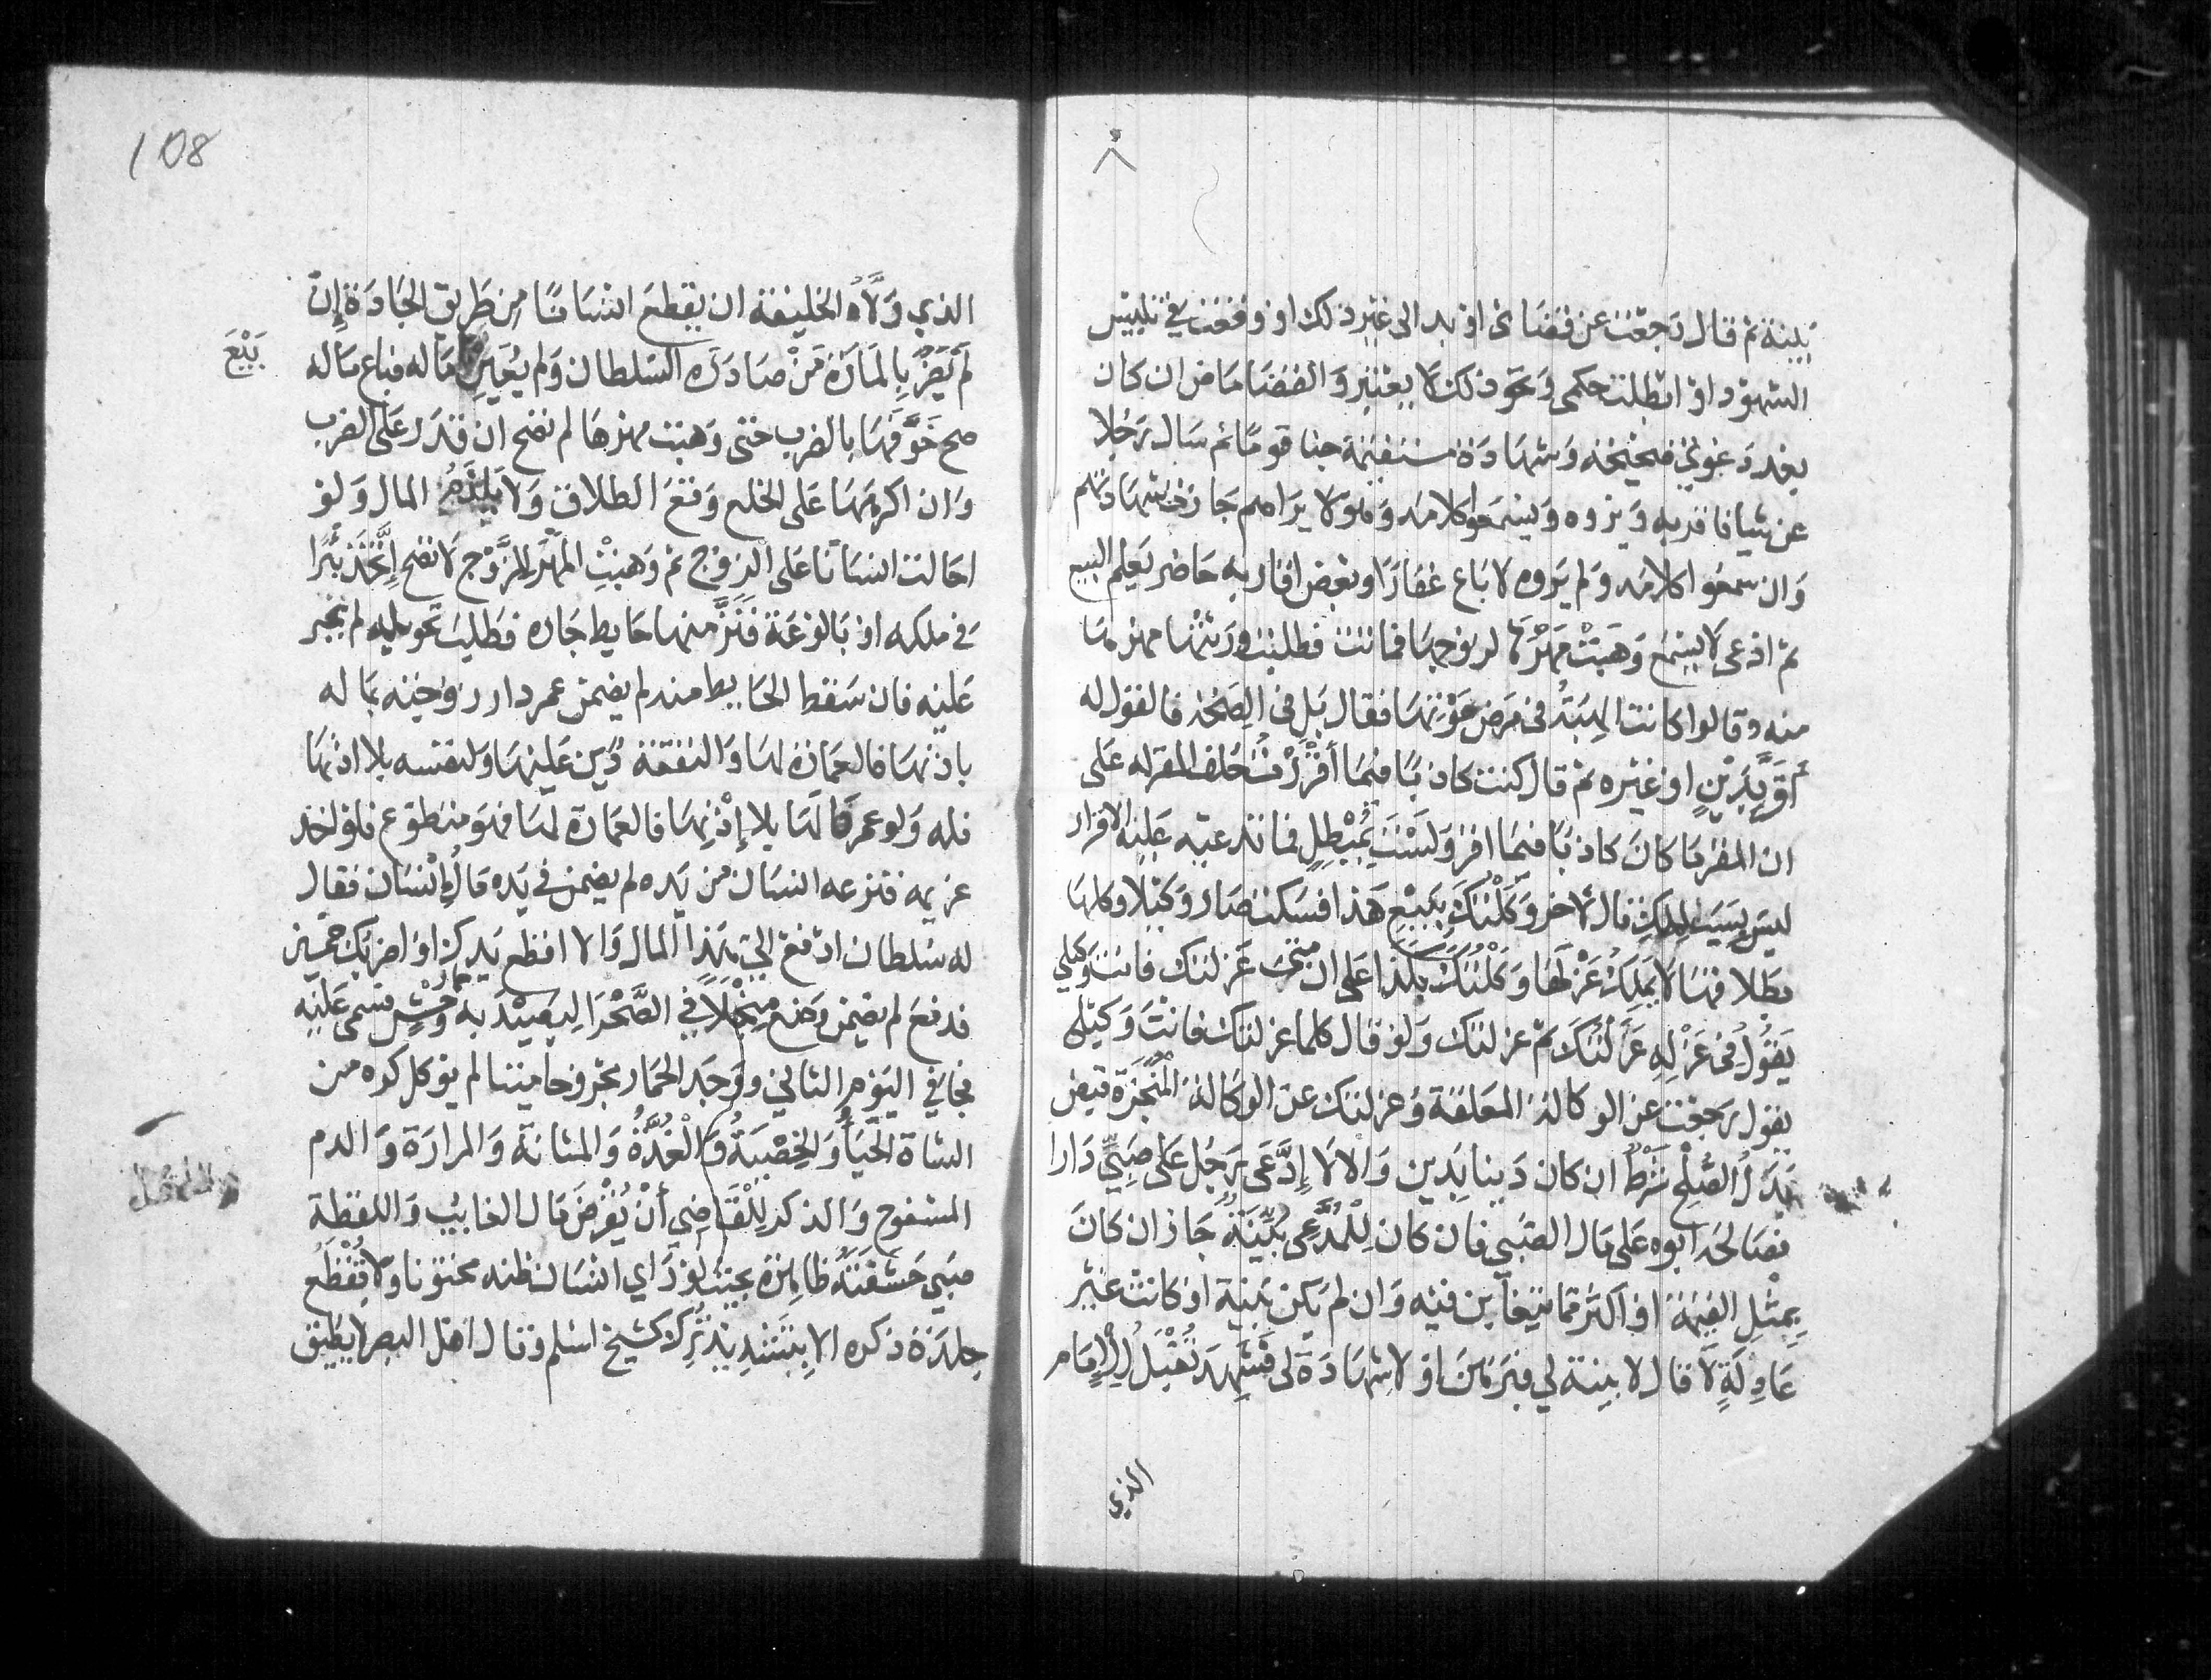 ببينة ثم قال رجعت عن قضائى او بدا لى غير ذلك او وقعت في تلبيس
الشهود او ابطلت حكمى ونحو ذلك لا يعتبر والقضا ماض ان كان
بعد دعوى صحيحة وشهادة مستقيمة خبا قوما ثم سال رجلا
عن شيا فاقر به وهم يروه ويسمعوا كلامه وهو لا يراهم جازت شهادتهم
وان سمعوا كلامه ولم يروه لا باع عقارا وبعض اقاربه حاضر يعلم البيع
ثم ادعى لا يسمع وهبت مهرها لزوجها فماتت فطلبت ورثتها مهرها
منه وقالوا كانت الهبة فى مرض موتها فقال بل فى الصحة فالقول له
أقر بدين او غيره ثم قال كنت كاذبا فيما أقررت حلف المقر له على
ان المقر ما كان كاذبا فيما اقر ولست بمبطل فما تدعيه عليه الاقرار
ليس بسبب للملك قال لاخر وكلتك ببيع هذا فسكت صار وكيلا وكلها
بطلاقها لا يملك عزلها وكلتك بكذا على ان متى عزلتك فانت وكيلي
يقول فى عزله عزلتك ثم عزلتك ولو قال كلما عزلتك فانت وكيلى
يقول رجعت عن الوكالة المعلقة وعزلتك عن الوكالة المنجزة قبض
بدل الصلح شرط ان كان دينا بدين والا لا إدعى رجل على صبي دارا
فصالحه ابوه على مال الصبي فان كان للمدعى بينة جاز ان كان
بمثل القيمة او اكثر مما يتغابن فيه وان لم يكن بينة او كانت غير
عادلة لا قال لا بينة لي فبرهن او لا شهادة لى فشهد تقبل للإمام
الذي
108
الذي ولاه الخليفة ان يقطع انسانا من طريق الجادة إن
لم يضر بالمارة من صادره السلطان ولم يعين ماله فباع ماله
بيع
صح خوفها بالضرب حتى وهبت مهرها لم تصح ان قدر على الضرب
وان اكرهها على الخلع وقع الطلاق ولا يلزم المال ولو
احالت انسانا على الزوج ثم وهبت المهر للزوج لا تصح إتخذ بئرا
في ملكه او بالوعة فنز منها حايط جاره فطلب تحويله لم يجبر
عليه فان سقط الحايط منه لم يضمن عمر دار زوجته بماله
باذنها فالعمارة لها والنفقة دين عليها ولنفسه بلا اذنها
فله ولو عمر لها بلا إذنها فالعمارة لها فهو متطوع فلو اخذ
غريمه فنزعه انسان من يده لم يضمن في يده مال انسان فقال
له سلطان ادفع الي هذا المال والا اقطع يدك او اضربك خمسين
فدفع لم يضمن وضع منجلا في الصحرا ليصيد به حمار وحش وسمى عليه
فجا في اليوم الثاني ووجد الحمار مجروحا ميتا لم يوكل كره من
الشاة الحيا والخصية والغدة والمثانة والمرارة والدم
المسفوح والذكر للقاضي أن يقرض مال الغايب واللقطة
صبي حشفته ظاهرة بحيث لو راي انسان ظنه مختونا ولا تقطع
جلدة ذكره الا بتشديد ترك كشيخ اسلم وقال اهل البصر لا يطيق